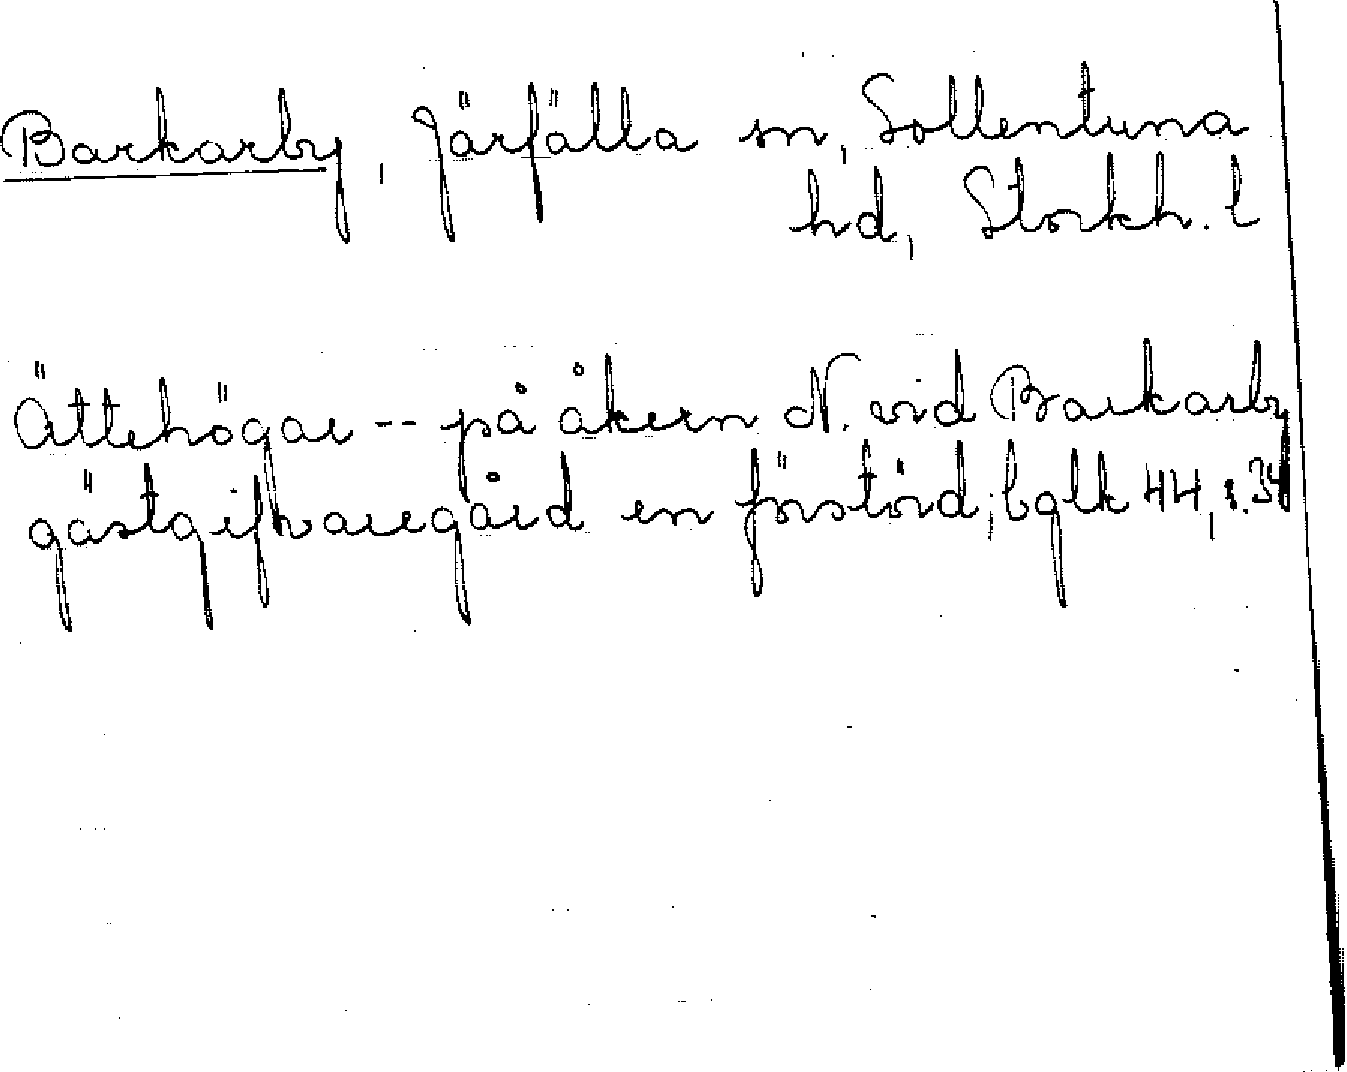 Barkarby, Järfälla sn, Sollentuna
hd, Stockh. l
Ättehögar -- på åkern N. vid Barkarby
gästgifvaregård en förstörd; bglk 44, s. 34